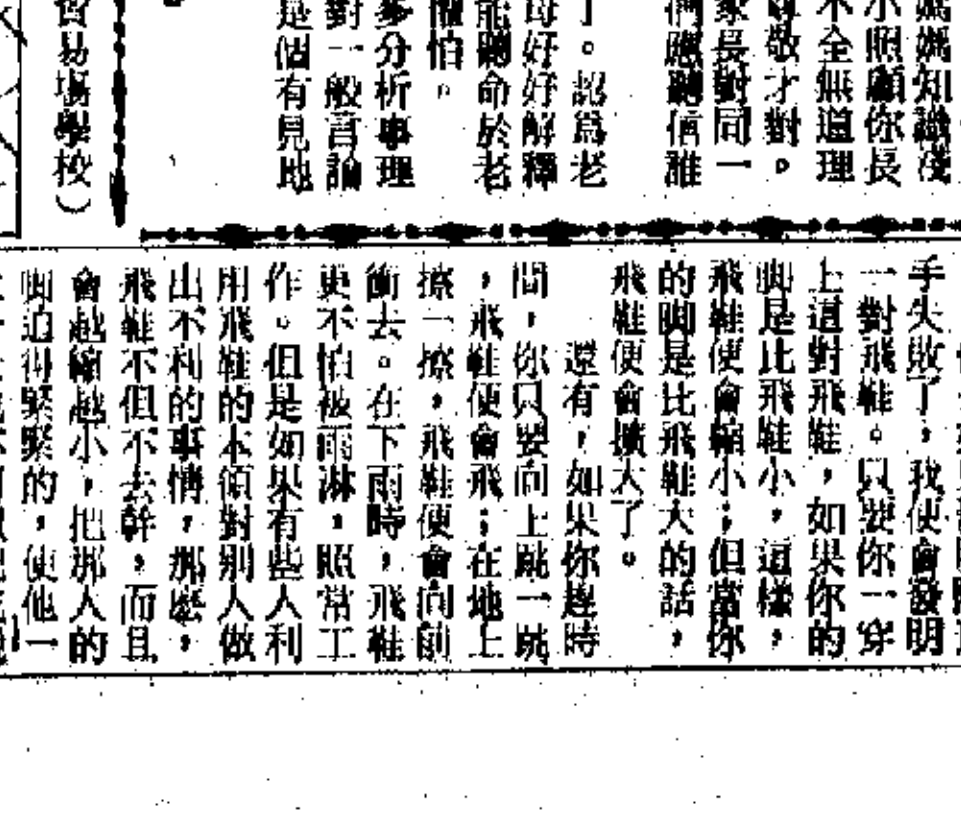 媽媽知識淺
小照顧你長
不全無道理
尊敬才對。
家長對同一
們應聽信誰
了。認爲老
母好好解釋
能聽命於老
懼怕。
多分析事理
對一般言論
是個有見地
易場學校)
手失敗了，我便會發明
一對飛鞋。只要你一穿
上這對飛鞋，如果你的
脚是比飛鞋小，這樣，
飛鞋便會縮小；但當你
的脚是比飛鞋大的話，
飛鞋便會擴大了。
還有，如果你趕時
間，你只要向上跳一跳
，飛鞋便會飛；在地上
擦一擦，飛鞋便會向前
衝去。在下雨時，飛鞋
更不怕被雨淋，照常工
作。但是如果有些人利
用飛鞋的本領對別人做
出不利的事情，那麽，
飛鞋不但不去幹，而且
會越縮越小，把那人的
脚迫得緊緊的，使他一